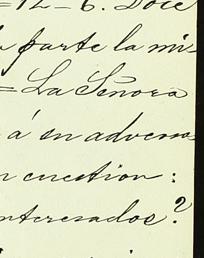 =12-6. Doce
parte la mi-
= La Señora
á en adverso
n cuestion:
nteresados?